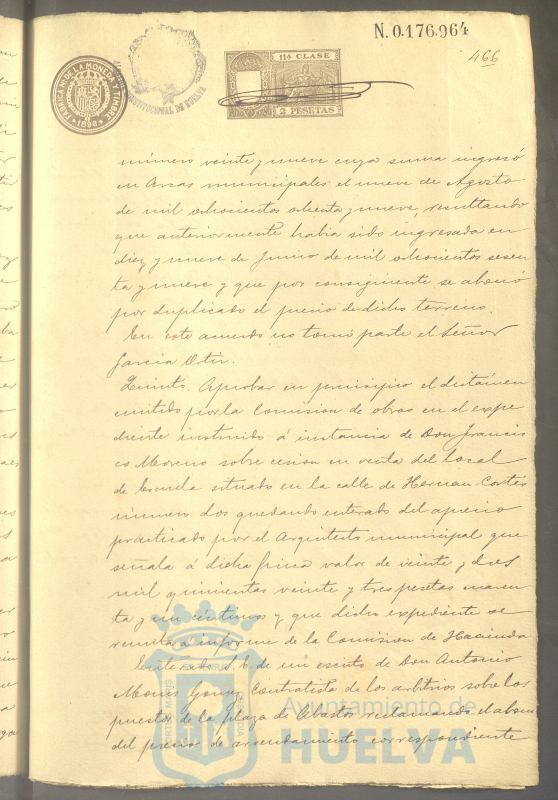 N. 0.176.964
466
FABRICA N. DE LA MONEDA Y TIMBRE
1896
CONSTITUCIONAL DE HUELVA
11ª CLASE
2 PESETAS
número veinte y nueve cuya suma ingresó
en Arcas municipales el nueve de Agosto
de mil ochocientos ochenta y nueve, resultando
que anteriormente habia sido ingresada en
diez y nueve de Junio de mil ochocientos sesen
ta y nueve y que por consiguiente se abonó
por duplicado el precio de dicho terreno.
En este acuerdo no tomó parte el Señor
Garcia Ortiz.
Quinto. Aprobar en principio el dictámen
emitido por la Comision de obras en el expe
diente instruido á instancia de Don Francis
co Moreno sobre cesion en venta del local
de Escuela situado en la calle de Hernan-Cortés
número dos quedando enterado del aprecio
practicado por el Arquitecto municipal que
señala á dicha finca valor de veinte y dos
mil quinientas veinte y tres pesetas cuaren
ta y un centimos y que dicho expediente se
remita á informe de la Comision de Hacienda
Enterado S. E. de un escrito de Don Antonio
Gomez Contratista de los arbitrios sobre los
puestos de la plaza de Abastos reclamando el abono
del precio de arrendamiento correspondiente
Ayuntamiento de
HUELVA